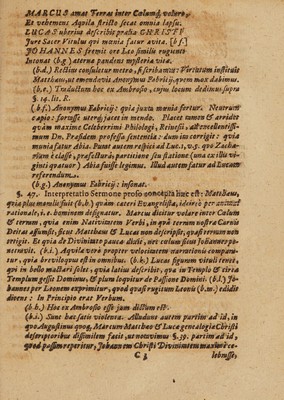 MARCUS amat Terras inter Cœlumq́; volare,
Et vehemens Aquila stricto secat omnia lapsu.
LUCAS uberius describit prælia CHRISTI
Jure Sacer Vitulus qui mœnia fatur avita. [b f.]
JOHANNES fremit ore Leo similis rugienti
Inconat (b g.) æterna pandens mysteria vitæ.
(b d.) Rectius consuletur metro, si scribamus: Virtutum instituit
Matthæus, ut emendavit Anonymus Fabricij, quem dux damus.
(b e.) Traductum hoc ex Ambrosio, cujus locum dedimus supra
§. 14. lit. R.
(b f.) Anonymus Fabricij: quia justa mœnia fertur. Neutrum
capio: forsitan uterq́; jacet in mendo. Placet tamen & arridet
quàm maximè Celeberrimi Philologi, Reinesii, ad excellentissi-
mum Dn. Præsidem professa sententia: dum ita corrigit: quia
munia fatur Abia. Putat autem respici ad Luc. 1, v. 5. quo Zacha-
riam ex classe, præfectura, partitione sua statione (una ex illis vi-
ginti quatuor) Abia fuisse legimus. Illud autem fatur ad Lucam
referendum.
(b g.) Anonymus Fabricij: insonat.
§. 47. Interpretatio Sermone proso concepta hæc est: Matthæus,
quia plus moralis fuit (b h.) quàm cæteri Evangelistæ, ideirò per animal
rationale, i. e. hominem designatur. Marcus dicitur volare inter Cœlum
& terram, quia enim Nativitatem Verbi, in quâ terram nostra Carnis
Deitas assumsit, sicut Matthæus & Lucas non descripsit, quasi terram non
tetigit. Et quia de Divinitate pauca dixit, nec cœlum sicut Johannes pe-
netravit. (b i.) Aquilæ verò propter velocitatem narrationis compara-
tur, quia breviloquus est in omnibus. (b k.) Lucas figuram vituli tenet,
qui in bello mactari solet, quia latius describit, qua in Templo & circa
Templum gessit Dominus, & plura loquitur de Passione Domini. (b l.) Jo-
hannes per Leonem exprimitur, quod quasi rugitum Leonis (b m.) edidit
dicens: In Principio erat Verbum.
(b h.) Hoc ex Ambrosio esse jam dictum est.
(b i.) Sunt hæc satis violenta. Alludunt autem partim ad id, in
quo Augustinus quoq́; Marcum Matthæo & Lucæ genealogiæ Christi
descriptoribus dissimilem facit, ut novimus §. 39. partim ad id,
quod passim reperitur, Johannem Christi Divinitatem maximè ce-
C 3 lebrasse,